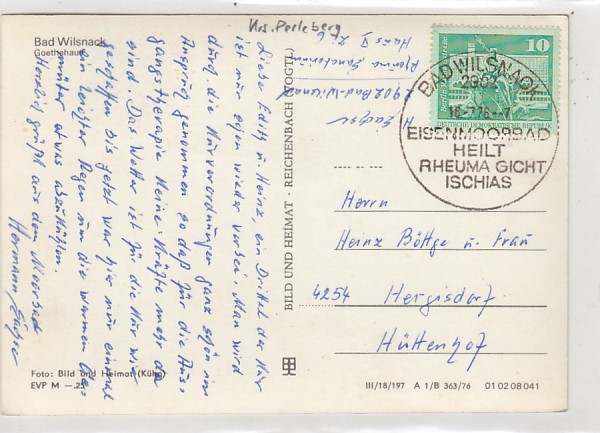 Krs. Perleberg
Bad Wilsnack
Goethehaus
Liebe Edith u. Heinz, ein Drittel der Kur
ist nun schon wieder vorbei. Man wird
durch die Kurverordnungen ganz schön in
Anspruch genommen so daß für die Aus,
gangstherapie keine Kräfte mehr da
sind. Das Wetter ist für die Kur wie
geschaffen bis jetzt war hier nur einmal
ein leichter Regen um die warmen
etwas abzukühlen.
Herzlich grüßt aus dem Moorbad
Hermann
Foto: Bild und Heimat (Kühn)
EVP M –.25
BILD UND HEIMAT · REICHENBACH (VOGTL)
H.
2902 Bad-Wilsnack
Sanatorium
Haus V Zi. 6
10
DEUTSCHE DEMOKRATISCHE REPUBLIK
BAD WILSNACK
2902
16-7.76.-7
EISENMOORBAD
HEILT
RHEUMA GICHT
ISCHIAS
Herrn
Heinz Böttge u. Frau
4254 Hergisdorf
Hüttenhof
III/18/197 A 1/B 363/76 01 02 08 041